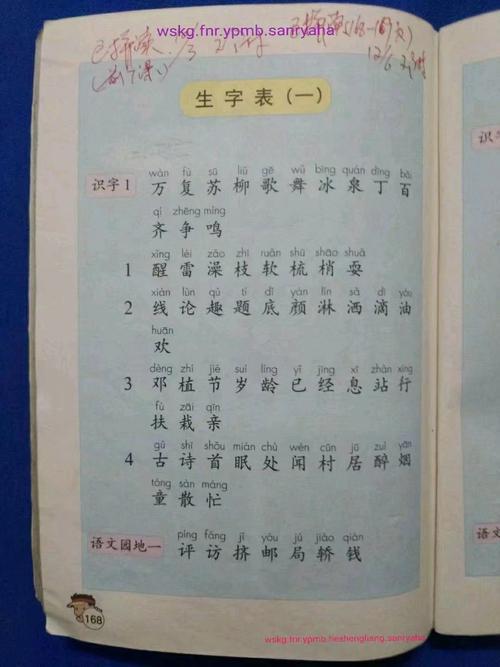 wskg.fnr.ypmb.sanryaha
生字表(一)
wàn fù sū liǔ gē wǔ bīng quán dīng bǎi
识字1 万 复 苏 柳 歌 舞 冰 泉 丁 百
qí zhēng míng
齐 争 鸣
xǐng léi zǎo zhī ruǎn shū shāo shuǎ
1 醒 雷 澡 枝 软 梳 梢 耍
xiàn lùn qù tí dǐ yán lín sǎ dī yóu
2 线 论 趣 题 底 颜 淋 洒 滴 油
huān
欢
dèng zhí jié suì líng yǐ jīng xī zhàn xíng
3 邓 植 节 岁 龄 已 经 息 站 行
fú zāi qīn
扶 栽 亲
gǔ shī shǒu mián chù wén cūn jū zuì yān
4 古 诗 首 眠 处 闻 村 居 醉 烟
tóng sàn máng
童 散 忙
píng fǎng jǐ yóu jú jiào qián
语文园地一 评 访 挤 邮 局 轿 钱
168
wskg.fnr.ypmb.heshengliang.sanryaha